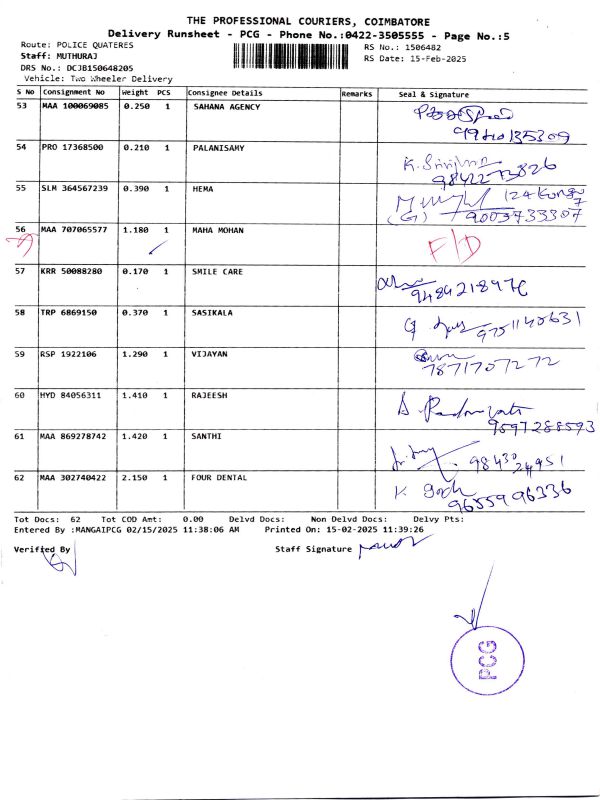 THE PROFESSIONAL COURIERS, COIMBATORE
Delivery Runsheet - PCG - Phone No.:0422-3505555 - Page No.:5
Route: POLICE QUATERES
RS No.: 1506482
Staff: MUTHURAJ
RS Date: 15-Feb-2025
DRS No.: DCJB150648205
Vehicle: Two Wheeler Delivery
S No Consignment No Weight PCS Consignee Details Remarks Seal & Signature
53 MAA 100069085 0.250 1 SAHANA AGENCY
54 PRO 17368500 0.210 1 PALANISAMY
9842273826
55 SLM 364567239 0.390 1 HEMA
(G) 9003733307
56 MAA 707065577 1.180 1 MAHA MOHAN F/D
57 KRR 50088280 0.170 1 SMILE CARE
9484218976
58 TRP 6869150 0.370 1 SASIKALA
9751140631
59 RSP 1922106 1.290 1 VIJAYAN
7871707272
60 HYD 84056311 1.410 1 RAJEESH
9597288593
61 MAA 869278742 1.420 1 SANTHI
9843024951
62 MAA 302740422 2.150 1 FOUR DENTAL
9655996336
Tot Docs: 62 Tot COD Amt: 0.00 Delvd Docs: Non Delvd Docs: Delvy Pts:
Entered By :MANGAIPCG 02/15/2025 11:38:06 AM Printed On: 15-02-2025 11:39:26
Verified By Staff Signature
PCG